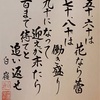 五十六十は 花なら蕾
七十八十は 働き盛り
九十になって 迎えが来たら
百まで待てと 追い返せ